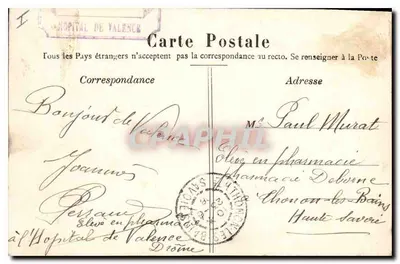 HOPITAL DE VALENCE
Carte Postale
Tous les Pays étrangers n'acceptent pas la correspondance au recto. Se renseigner à la Poste
Correspondance
Adresse
Bonjour de Valence
Joannès
Elève en pharmacie
à l'Hopital de Valence
Drôme
Mr Paul Murat
Elève en pharmacie
pharmacie Deborne
Thonon-les-Bains
Haute Savoie